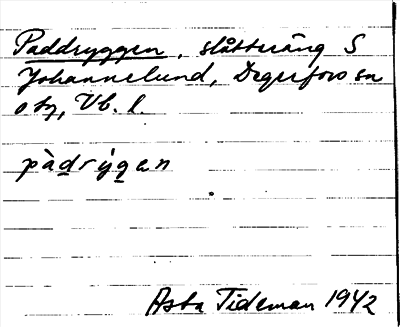 Paddryggen, slåtteräng S
Johannelund, Degerfors sn
o by, Vb. l.
pàdrýgan
Asta Tideman 1942